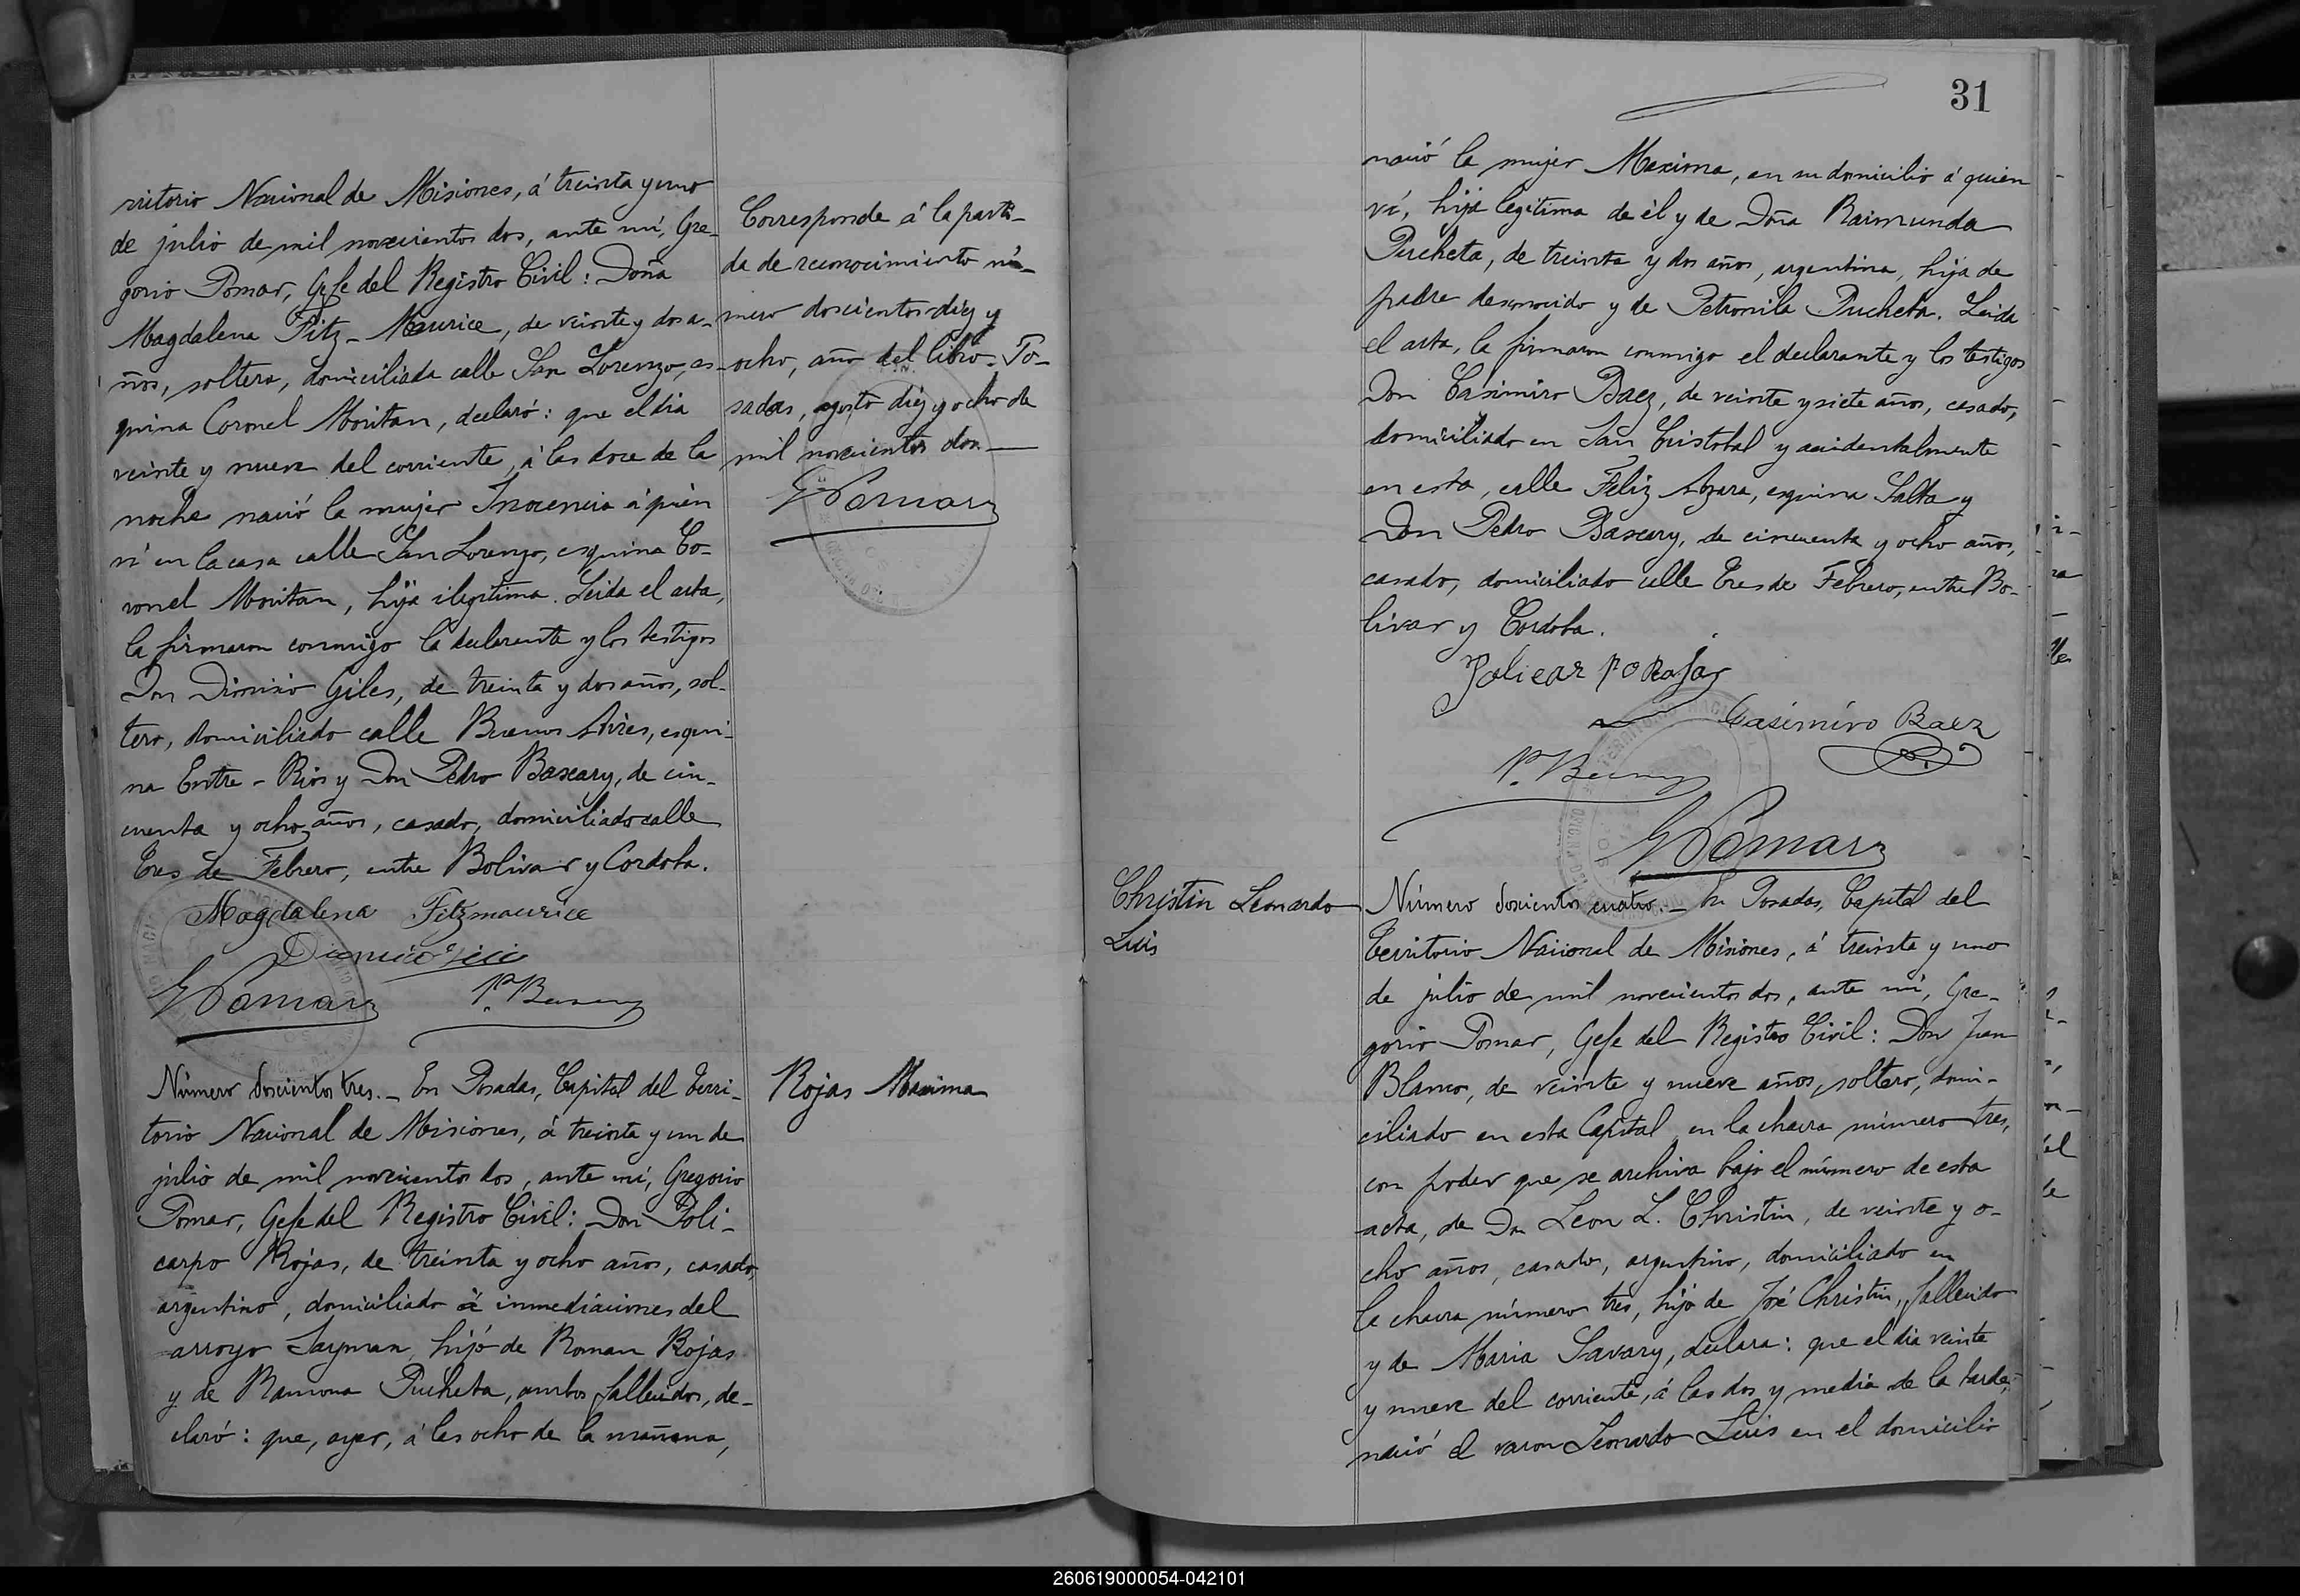 rritorio Nacional de Misiones, á treinta y uno
de julio de mil novecientos dos, ante mí, Gre-
gorio Pomar, Gefe del Registro Civil: Doña
Magdalena Fitz-Maurice, de veinte y dos a-
ños, soltera, domiciliada calle San Lorenzo, es-
quina Coronel Moritan, declaró: que el dia
veinte y nueve del corriente, á las doce de la
noche nació la mujer Inocencia á quien
ví en la casa calle San Lorenzo, esquina Co-
ronel Moritan, hija ilegitima. Leida el acta,
la firmaron conmigo la declarante y los testigos
Don Dionisio Giles, de treinta y dos años, sol-
tero, domiciliado calle Buenos Aires, esqui-
na Entre-Rios y Don Pedro Bascary, de cin-
cuenta y ocho años, casado, domiciliado calle
Tres de Febrero, entre Bolivar y Cordoba.
Magdalena Fitzmaurice
GPomar
P. Bascary
Corresponde á la parti-
da de reconocimiento nú-
mero doscientos diez y
ocho, año del libro. Po-
sadas, agosto diez y ocho de
mil novecientos dos
GPomar
Número doscientos tres._ En Posadas, Capital del Terri-
torio Nacional de Misiones, á treinta y un de
julio de mil novecientos dos, ante mí, Gregorio
Pomar, Gefe del Registro Civil: Don Poli-
carpo Rojas, de treinta y ocho años, casado,
argentino, domiciliado á inmediaciones del
arroyo Sayman, hijo de Roman Rojas
y de Ramona Pucheta, ambos fallecidos, de-
claró: que, ayer, á las ocho de la mañana,
Rojas Maxima
31
nació la mujer Maxima, en su domicilio á quien
ví, hija legitima de él y de Doña Raimunda
Pucheta, de treinta y dos años, argentina, hija de
padre desconocido y de Petronila Pucheta. Leida
el acta, la firmaron conmigo el declarante y los testigos
Don Casimiro Baez, de veinte y siete años, casado,
domiciliado en San Cristobal y accidentalmente
en esta, calle Feliz Azara, esquina Salta y
Don Pedro Bascary, de cincuenta y ocho años,
casado, domiciliado calle Tres de Febrero, entre Bo-
livar y Cordoba.
Policar po Rojas
Casimiro Baez
P. Bascary
GPomar
Christin Leonardo
Luis
Número doscientos cuatro._ En Posadas, Capital del
Territorio Nacional de Misiones, á treinta y uno
de julio de mil novecientos dos, ante mí, Gre-
gorio Pomar, Gefe del Registro Civil: Don Juan
Blanco, de veinte y nueve años, soltero, domi-
ciliado en esta Capital en la chacra número tres,
con poder que se archiva bajo el número de esta
acta, de Dn Leon L. Christin, de veinte y o-
cho años, casado, argentino, domiciliado en
la chacra número tres, hijo de José Christin, fallecido
y de Maria Savary, declara: que el dia veinte
y nueve del corriente, á las dos y media de la tarde,
nació el varon Leonardo Luis en el domicilio
260619000054-042101